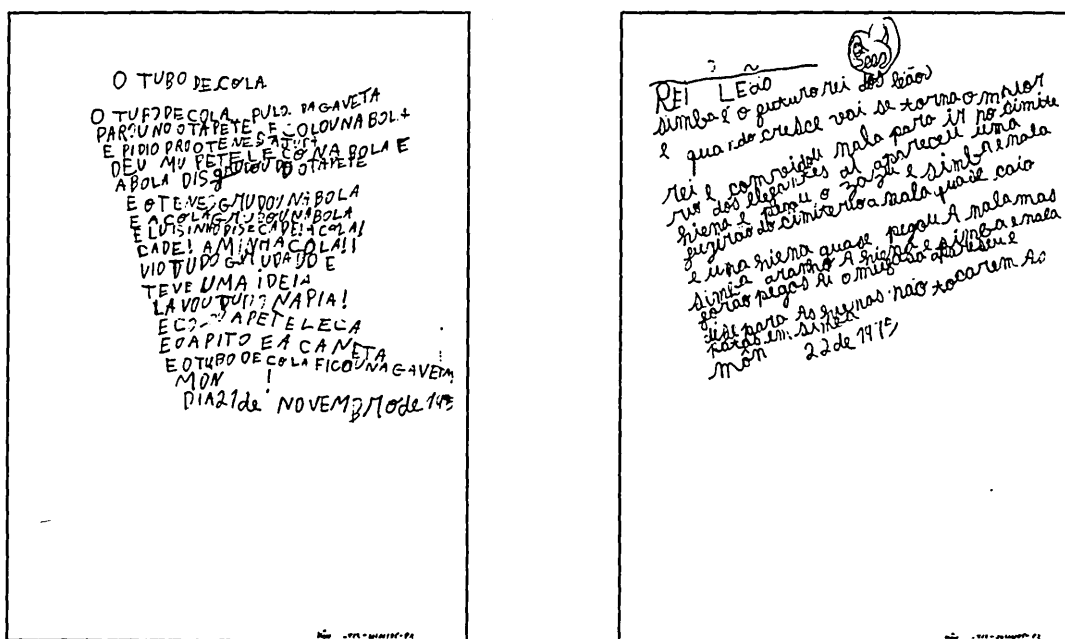 O TUBO DE COLA
O TUFO DE COLA PULO DA GAVETA
NO OTAPETE E COLOU NA BOLA
E PIDIO PRO OTENES
DEU MU PETELECO NA BOLA E
ABOLA DISgrudou DO OTAPETE
E OTENES GRUDOU NA BOLA
E A COLA GRUDOU NA BOLA
E LUISINHO DISE CADE! A COLA!
CADE! A MINHA COLA!!
VIO TUDO GRUDADO E
TEVE UMA IDEIA
LAVOU TUDO NA PIA!
APETELECA
E O APITO E A CANETA
E O TUBO DE COLA FICOU NA GAVETA
MON !
DIA 21 de NOVEMBRO de
REI LEÃO
simba é o futuro rei dos leão
e quando cresce vai se torna o maior
rei e comvidou nala para ir no simite
rio dos elefantes al apareceu uma
hiena e pegou o zazu e simba e nala
fugirão do cimiterio a nala quase caio
e uma hiena quase pegou A nala mas
simba aranho A hiena e simba e nala
forão pegos ai o mufasa apareseu e
dise para As hienas não tocarem As
patas em simba
môn 22 de